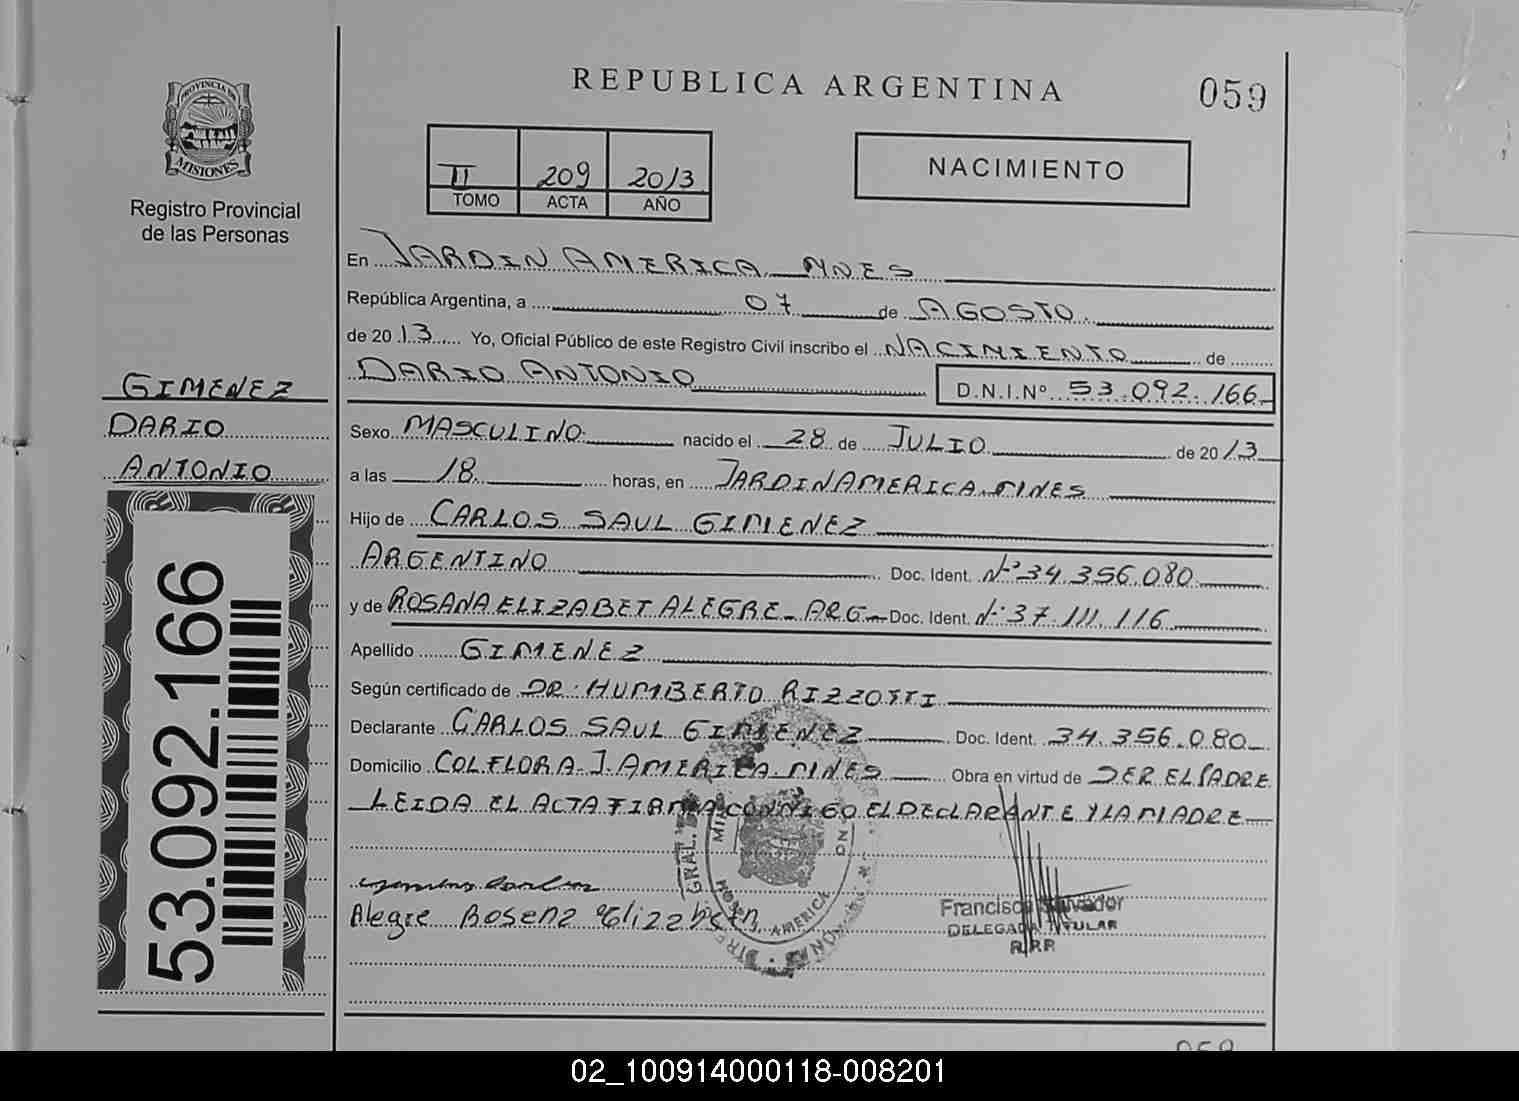 REPUBLICA ARGENTINA
059
PROVINCIA DE
MISIONES
Registro Provincial
de las Personas
II 209 2013
TOMO ACTA AÑO
NACIMIENTO
En JARDIN AMERICA MNES
República Argentina, a 07 de AGOSTO
de 2013 Yo, Oficial Público de este Registro Civil inscribo el NACIMIENTO de
DARIO ANTONIO D.N.I.Nº 53.092.166
GIMENEZ
DARIO
ANTONIO
53.092.166
Sexo MASCULINO nacido el 28 de JULIO de 2013
a las 18 horas, en JARDIN AMERICA MNES
Hijo de CARLOS SAUL GIMENEZ
ARGENTINO Doc. Ident. Nº 34.356.080
y de ROSANA ELIZABET ALEGRE - ARG - Doc. Ident. Nº 37.111.116
Apellido GIMENEZ
Según certificado de DR. HUMBERTO RIZZOTTI
Declarante CARLOS SAUL GIMENEZ Doc. Ident. 34.356.080
Domicilio COL FLORA J. AMERICA MNES Obra en virtud de SER EL PADRE
LEIDA EL ACTA FIRMA CONMIGO EL DECLARANTE Y LA MADRE
Alegre Rosana Elizabeth
GRAL.
AMERICA
Francisco Salvador
DELEGADO TITULAR
R.P.P
059
02_100914000118-008201